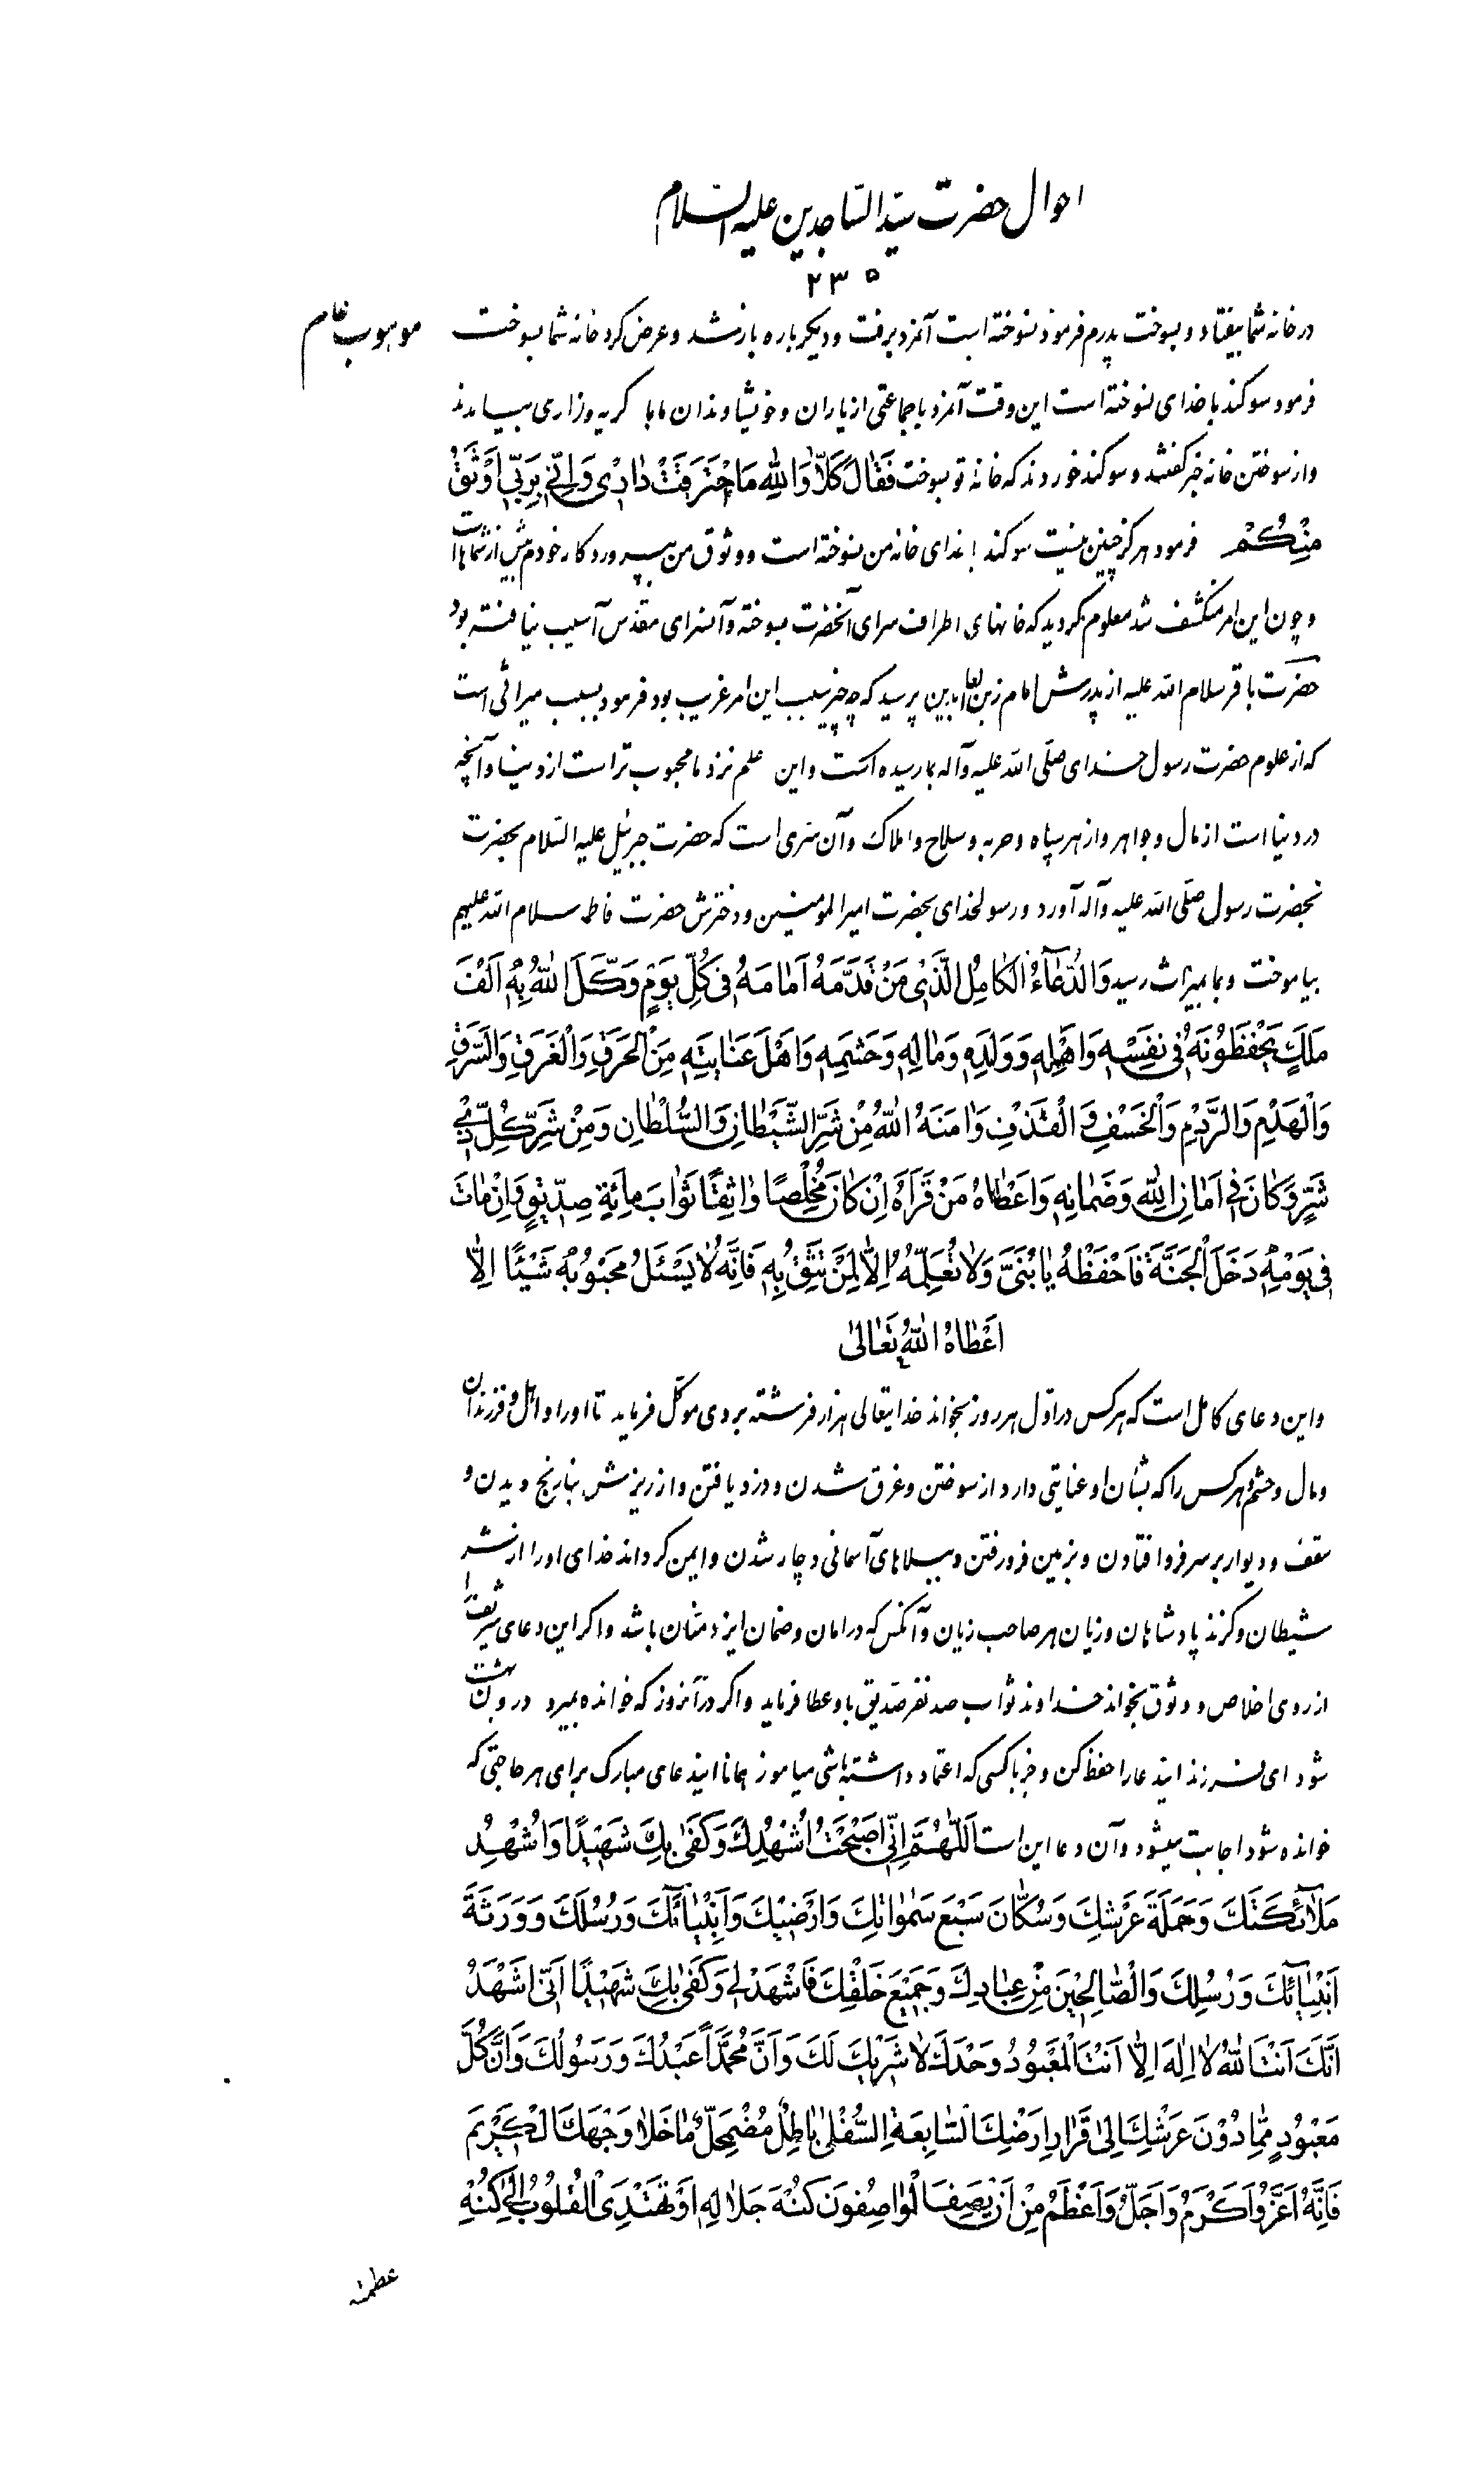 احوال حضرت سیّد السّاجدین علیه السّلام
۲۳۵
در خانه شما بیفتاد و بسوخت پدرم فرمود نسوخته است آنمرد برفت و دیگر باره باز شد و عرض کرد خانه شما بسوخت
فرمود سوگند با خدای نسوخته است این وقت آنمرد با جماعتی از یاران و خویشاوندان ما با گریه و زاری بیامدند
و از سوختن خانه خبر گفتند و سوگند خوردند که خانه تو بسوخت فَقٰالَ كَلّاٰ وَاللّٰهِ مَا احْتَرَقَتْ دٰارِیْ وَ اِنّیٖ بِرَبّیٖ اَوْثَقُ
مِنْكُمْ فرمود هرگز چنین نیست سوگند با خدای خانه من نسوخته است و وثوق من بپروردگار خودم بیش از شماهااست
و چون این امر منکشف شد معلوم گردید که خانهای اطراف سرای آنحضرت بسوخته و آنسرای مقدّس آسیب نیافته بود
حضرت باقر سلام اللّه علیه از پدرش امام زین العابدین پرسید که چه چیز سبب این امر غریب بود فرمود بسبب میراثی است
که از علوم حضرت رسول خدای صلّی اللّه علیه و آله بما رسیده است و این علم نزد ما محبوب تر است از دنیا و آنچه
در دنیا است از مال و جواهر و از هر سپاه و حربه و سلاح و املاک و آن سرّی است که حضرت جبرئیل علیه السّلام بحضرت
بحضرت رسول صلّی اللّه علیه و آله آورد و رسولخدای بحضرت امیرالمومنین و دخترش حضرت فاطمه سلام اللّه علیهم
بیاموخت و بما بمیراث رسید وَ الدُّعٰآءُ الْكٰامِلُ الَّذیٖ مَنْ قَدَّمَهُ اَمٰامَهُ فیٖ كُلِّ یَوْمٍ وَكَّلَ اللّٰهُ بِهٖ اَلْفَ
مَلَكٍ یَحْفَظُوْنَهُ فیٖ نَفْسِهٖ وَ اَهْلِهٖ وَ وَلَدِهٖ وَ مٰالِهٖ وَ حَشَمِهٖ وَ اَهْلَ عَنٰایَتِهٖ مِنَ الْحَرَقِ وَ الْغَرَقِ وَ السَّرَقِ
وَ الْهَدْمِ وَ الرَّدْمِ وَ الْخَسْفِ وَ الْقَذْفِ وَ اٰمَنَهُ اللّٰهُ مِنْ شَرِّ الشَّیْطٰانِ وَ السُّلْطٰانِ وَ مِنْ شَرِّ كُلِّ ذیٖ
شَرٍّ وَ كٰانَ فیٖ اَمٰانِ اللّٰهِ وَ ضَمٰانِهٖ وَ اَعْطٰاهُ مَنْ قَرَأَهُ اِنْ كٰانَ مُخْلِصًا وٰاثِقًا ثَوٰابَ مِائَةِ صِدّیٖقٍ وَ اِنْ مٰاتَ
فیٖ یَوْمِهٖ دَخَلَ الْجَنَّةَ فَاحْفَظْهُ یٰا بُنَیَّ وَ لٰا تُعَلِّمْهُ اِلّٰا لِمَنْ تَثِقُ بِهٖ فَاِنَّهُ لٰا یَسْئَلُ مَحْبُوْبُهُ شَیْئًا اِلّٰا
اَعْطٰاهُ اللّٰهُ تَعٰالٰی
و این دعای کامل است که هر کس در اوّل هر روز بخواند خدایتعالی هزار فرشته بر وی موکّل فرماید تا او را و اهل و فرزندان
و مال و حشم و هر کس را که بشأن او عنایتی دارد از سوختن و غرق شدن و دزد یافتن و از ریزش بنا رنج دیدن و
سقف و دیوار بر سر فروافتادن و بزمین فرورفتن و ببلاهای آسمانی دچار شدن و ایمن گرداند خدای او را از شر
شیطان و گزند پادشاهان و زیان هر صاحب زیان و آنکس که در امان و ضمان ایزد منّان باشد و اگر این دعای شریف را
از روی اخلاص و وثوق بخواند خداوند ثواب صد نفر صدّیق باو عطا فرماید و اگر در آنروز که خوانده بمیرد درون بهشت
شود ای فرزند ایندعا را حفظ کن و جز با کسی که اعتماد داشته باشی میاموز همانا ایندعای مبارک برای هر حاجتی که
خوانده شود اجابت میشود و آن دعا این است اَللّٰهُمَّ اِنّیٖ اَصْبَحْتُ اُشْهِدُكَ وَ كَفٰی بِكَ شَهیٖدًا وَ اُشْهِدُ
مَلٰائِكَتَكَ وَ حَمَلَةَ عَرْشِكَ وَ سُكّٰانَ سَبْعِ سَمٰوٰاتِكَ وَ اَرَضیٖكَ وَ اَنْبِیٰآئَكَ وَ رُسُلَكَ وَ وَرَثَةَ
اَنْبِیٰآئِكَ وَ رُسُلِكَ وَ الصّٰالِحیٖنَ مِنْ عِبٰادِكَ وَ جَمیٖعَ خَلْقِكَ فَاشْهَدْ لیٖ وَ كَفٰی بِكَ شَهیٖدًا اَنّیٖ اَشْهَدُ
اَنَّكَ اَنْتَ اللّٰهُ لٰا اِلٰهَ اِلّٰا اَنْتَ الْمَعْبُوْدُ وَحْدَكَ لٰا شَریٖكَ لَكَ وَ اَنَّ مُحَمَّدًا عَبْدُكَ وَ رَسُوْلُكَ وَ اَنَّ كُلَّ
مَعْبُوْدٍ مِمّٰا دُوْنَ عَرْشِكَ اِلٰی قَرٰارِ اَرْضِكَ السّٰابِعَةِ السُّفْلٰی بٰاطِلٌ مُضْمَحِلٌّ مٰا خَلٰا وَجْهَكَ الْكَریٖمَ
فَاِنَّهُ اَعَزُّ وَ اَكْرَمُ وَ اَجَلُّ وَ اَعْظَمُ مِنْ اَنْ یَصِفَ الْوٰاصِفُونَ كُنْهَ جَلٰالِهٖ اَوْ تَهْتَدِیَ الْقُلُوْبُ اِلٰی كُنْهِ
عظمته